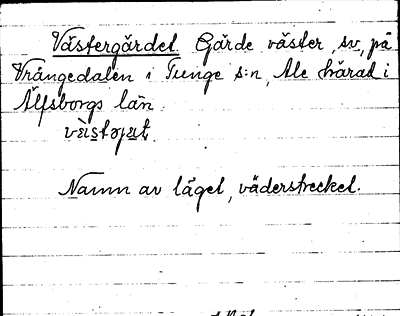 Västergärdet Gärde väster, sv, på
Vrångedalen i Tunge s:n, Ale härad i
Älfsborgs län.
Namn av läget, väderstrecket.